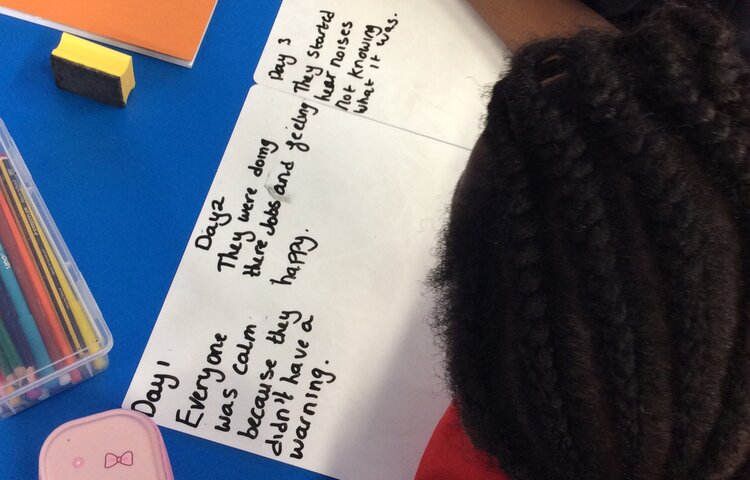 Day 1
Everyone
was calm
because they
didn't have a
warning.
Day2
They were doing
there Jobs and feeling
happy.
Day 3
They started
hear noises
not knowing
what it was.